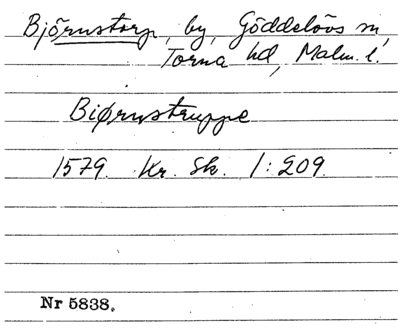 Björnstorp, by, Göddelövs sn,
Torna hd, Malm. l.
Biørnstruppe
1579. Kr. Sk. 1:209.
Nr 5838.